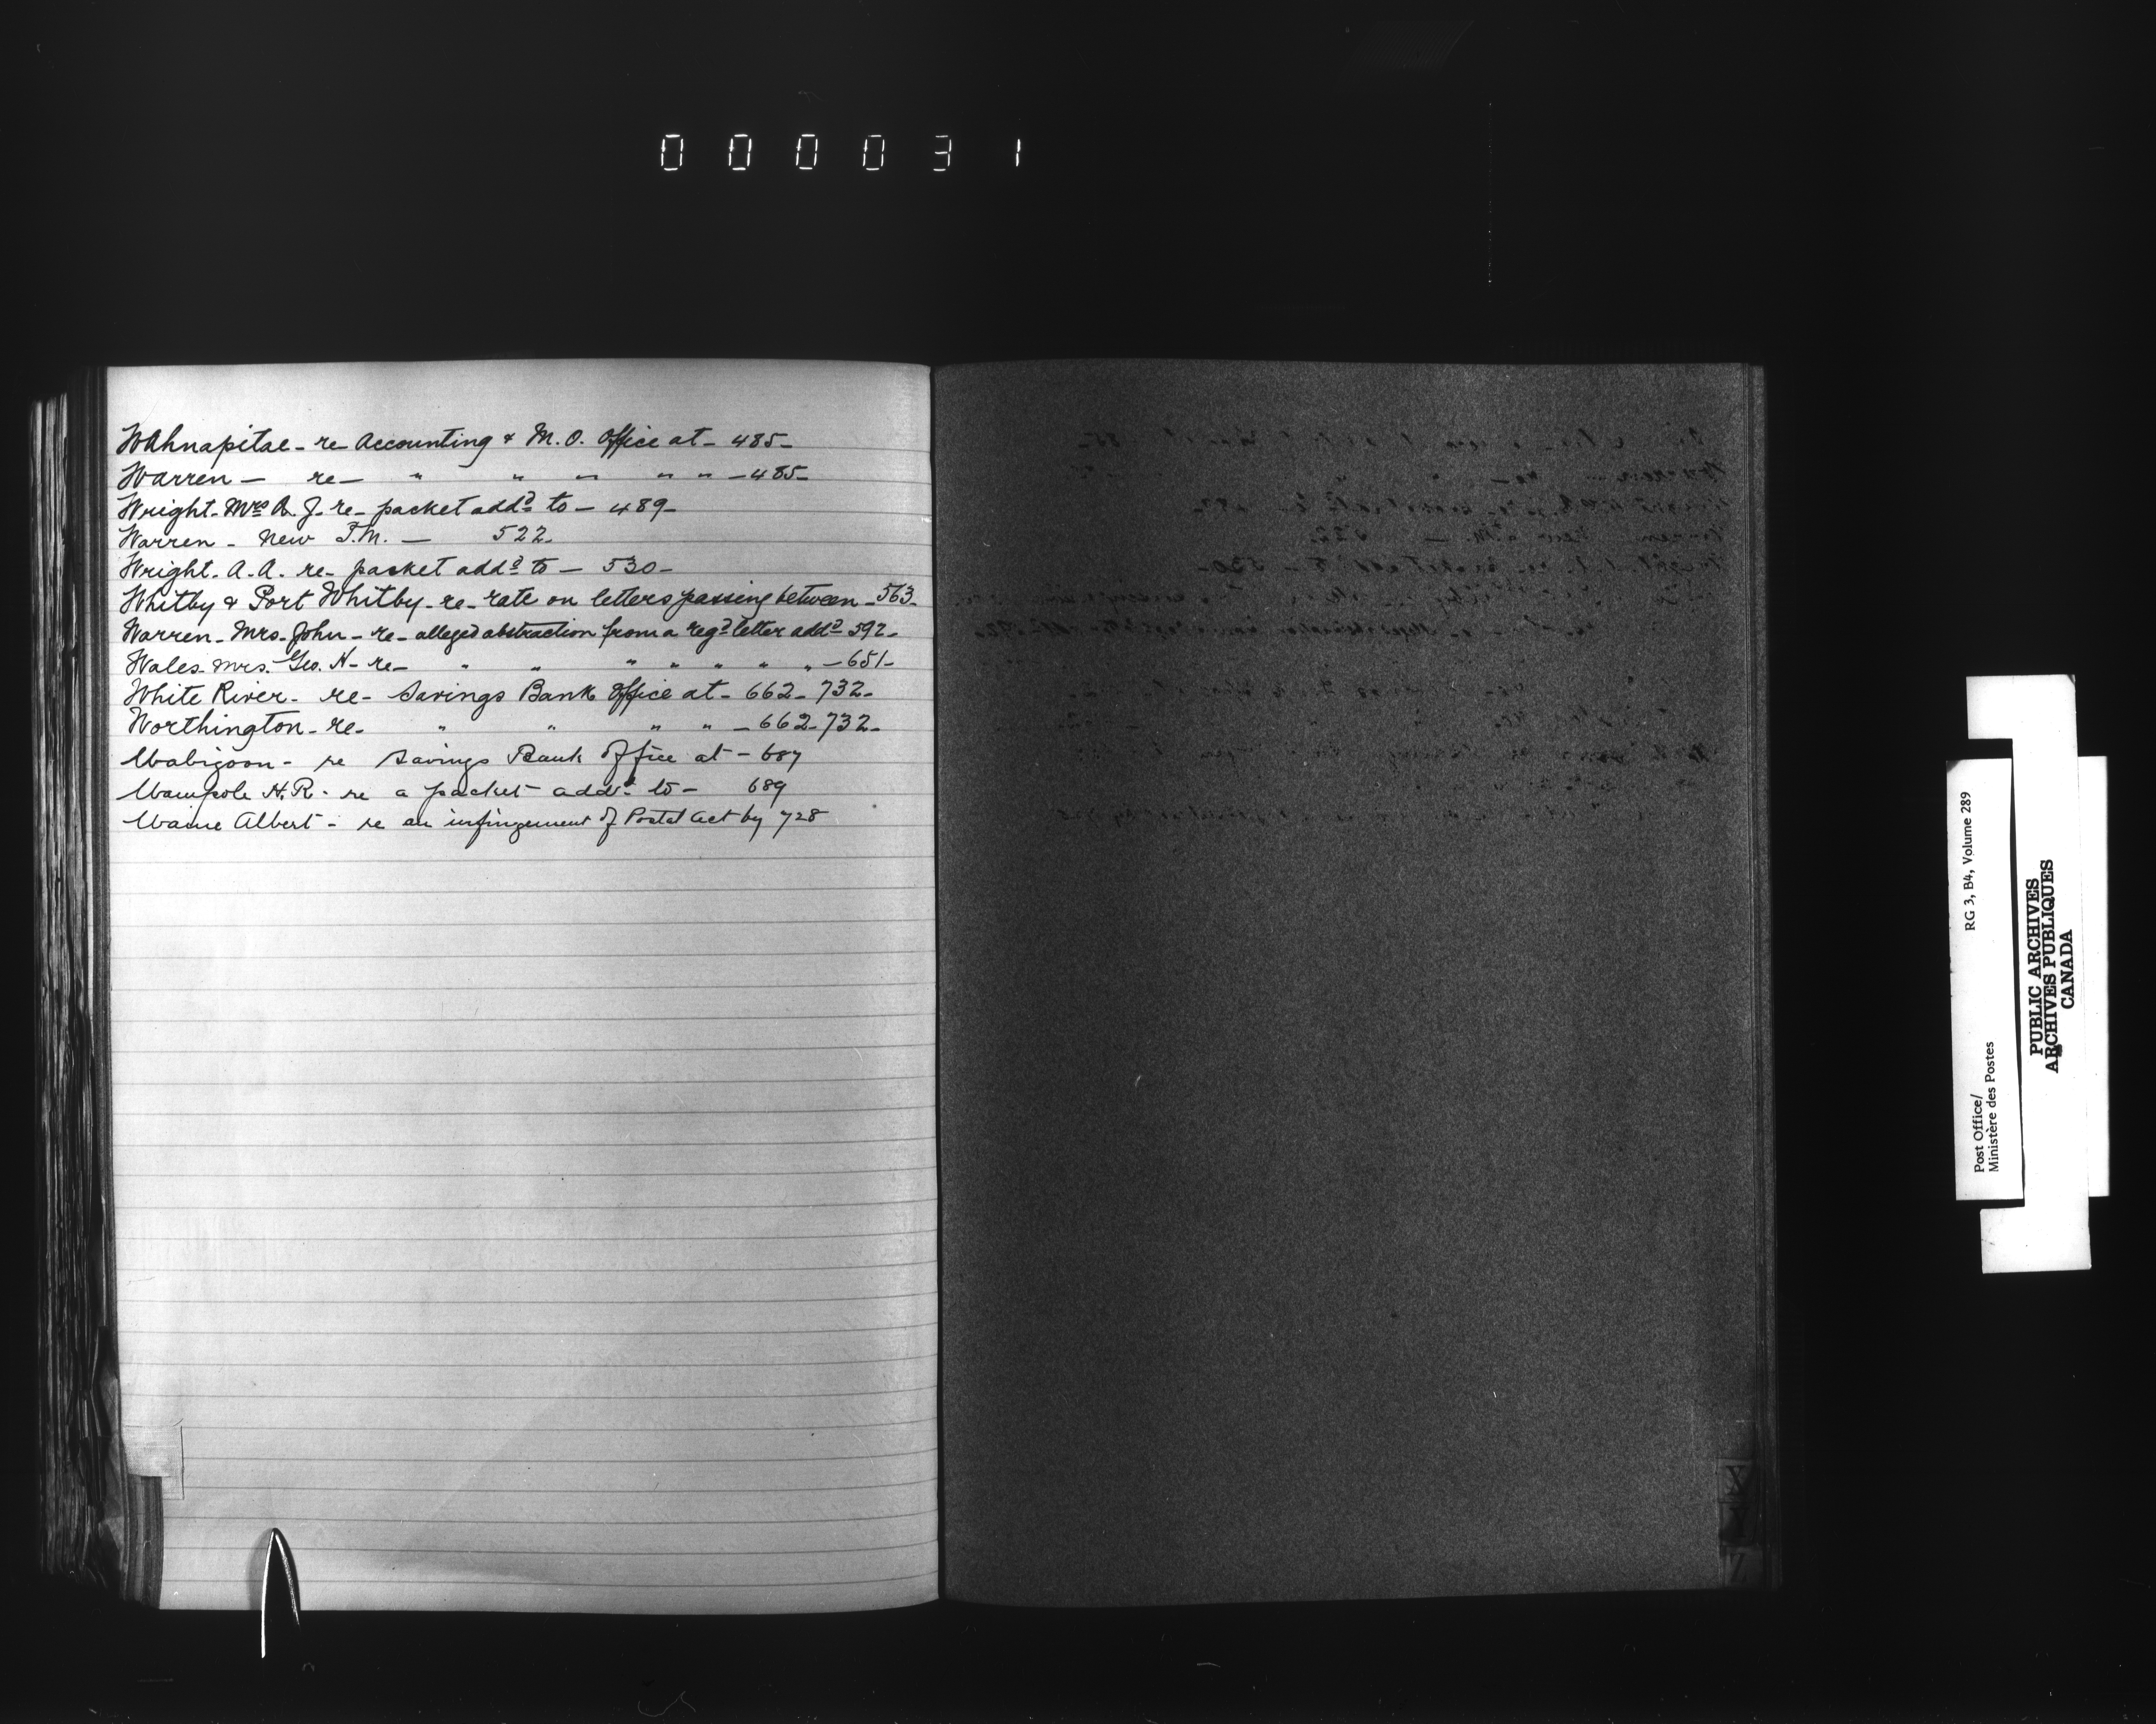 000031
Wahnapitae - re - Accounting & M.O. Office at - 485 -
Warren - re - " " " " " - 485 -
Wright - Mrs A. J. re - packet addd to - 489 -
Warren - New P.M. - 522 -
Wright - A.A. re - packet addd to - 530 -
Whitby & Port Whitby - re - rate on letters passing between - 563 -
Warren - Mrs. John - re - alleged abstraction from a regd letter addd 592 -
Wales - Mrs. Geo. N - re - " " " " " " " - 651 -
White River - re - Savings Bank Office at - 662 - 732 -
Worthington - re - " " " " - 662 - 732 -
Wabigoon - re Savings Bank Office at - 687
Wampole H.R. - re a packet addd to - 689
Waine Albert - re an infringement of Postal Act by 728
X
Y
Z
RG 3, B4, Volume 289
Post Office/
Ministère des Postes
PUBLIC ARCHIVES
ARCHIVES PUBLIQUES
CANADA